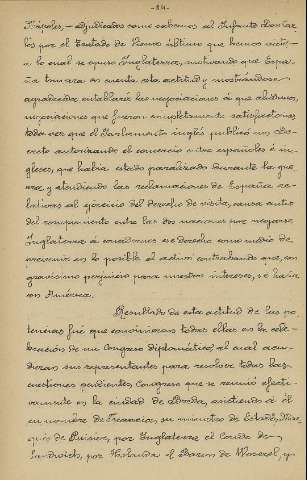 -84-
Nápoles,- adjudicados como sabemos al Infante Don Car
los por el Tratado de Viena último que hemos visto,-
a lo cual se opuso Inglaterra, motivando que Espa-
ña tomara en cuenta esta actitud y mostrándose
agradecida entablara las negociaciones a que aludimos,
negociaciones que fueron completamente satisfactorias
toda vez que el Parlamento inglés publicó un de-
creto autorizando el comercio entre españoles é in-
gleses, que había estado paralizado durante la gue-
rra y atendiendo las reclamaciones de España re-
lativas al ejercicio del derecho de visita, causa antes
del rompimiento entre las dos naciones por negarse
Inglaterra á concedernos ese derecho como medio de
prevenir en lo posible el activo contrabando que, con
gravísimo perjuicio para nuestros intereses, se hacía
con América.
Resultado de esta actitud de las po-
tencias fué que convinieran todas ellas en la cele-
bración de un Congreso diplomático, al cual acu-
dieran sus representantes para resolver todas las
cuestiones pendientes, Congreso que se reunió efecti-
vamente en la ciudad de Breda, asistiendo á él
en nombre de Francia, su ministro de Estado, Mar-
qués de Puisieux, por Inglaterra el Conde de
Sandwich, por Holanda el Barón de Wassenaer, y